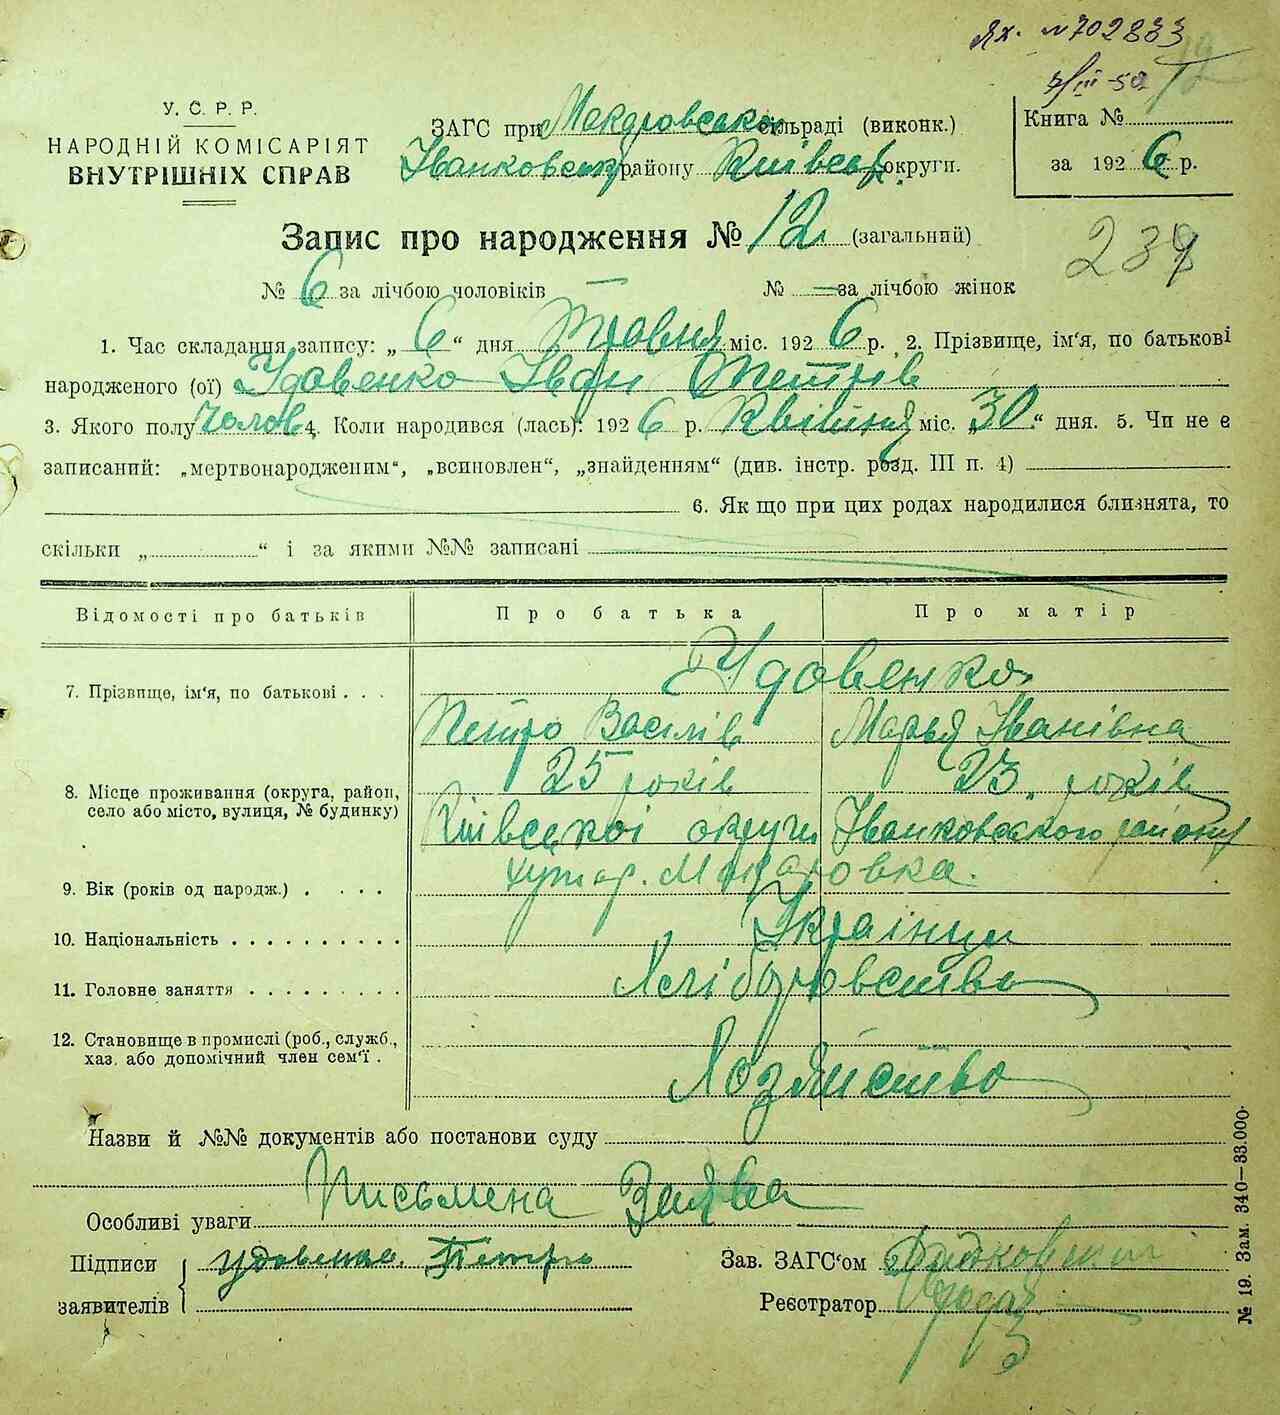 Ях. №702833
7/III-50
12
У. С. Р. Р.
НАРОДНІЙ КОМІСАРІЯТ
ВНУТРІШНІХ СПРАВ
ЗАГС при Макаровськ сільраді (виконк.)
Іванковськ району Київськ округи.
Книга №
за 1926 р.
Запис про народження № 12 (загальний)
239
№ 6 за лічбою чоловіків № — за лічбою жінок
1. Час складання запису: „6“ дня Травня міс. 1926 р. 2. Прізвище, ім‘я, по батькові
народженого (ої) Удовенко Іван Петрів
3. Якого полу Чолов 4. Коли народився (лась): 1926 р. Квітня міс. „30“ дня. 5. Чи не є
записаний: „мертвонародженим“, „всиновлен“, „знайденням“ (див. інстр. розд. III п. 4)
6. Як що при цих родах народилися близнята, то
скільки „ “ і за якими №№ записані
Відомості про батьків Про батька Про матір
7. Прізвище, ім‘я, по батькові . . . Удовенко
Петро Василів Марья Іванівна
25 років 23 років
8. Місце проживання (округа, район,
село або місто, вулиця, № будинку)
Київської округи Іванковського району
хутор. Макаровка.
9. Вік (років од народж.) . . . .
10. Національність . . . . . . . . . . Українци
11. Головне заняття . . . . . . . . . Хліборобство
12. Становище в промислі (роб., служб.,
хаз. або допомічний член сем‘ї .
Хозяйство
Назви й №№ документів або постанови суду
Письмена Заява
Особливі уваги
Підписи заявителів Удовенко. Петро
Зав. ЗАГС‘ом
Реєстратор
№ 19. Зам. 340—33.000.